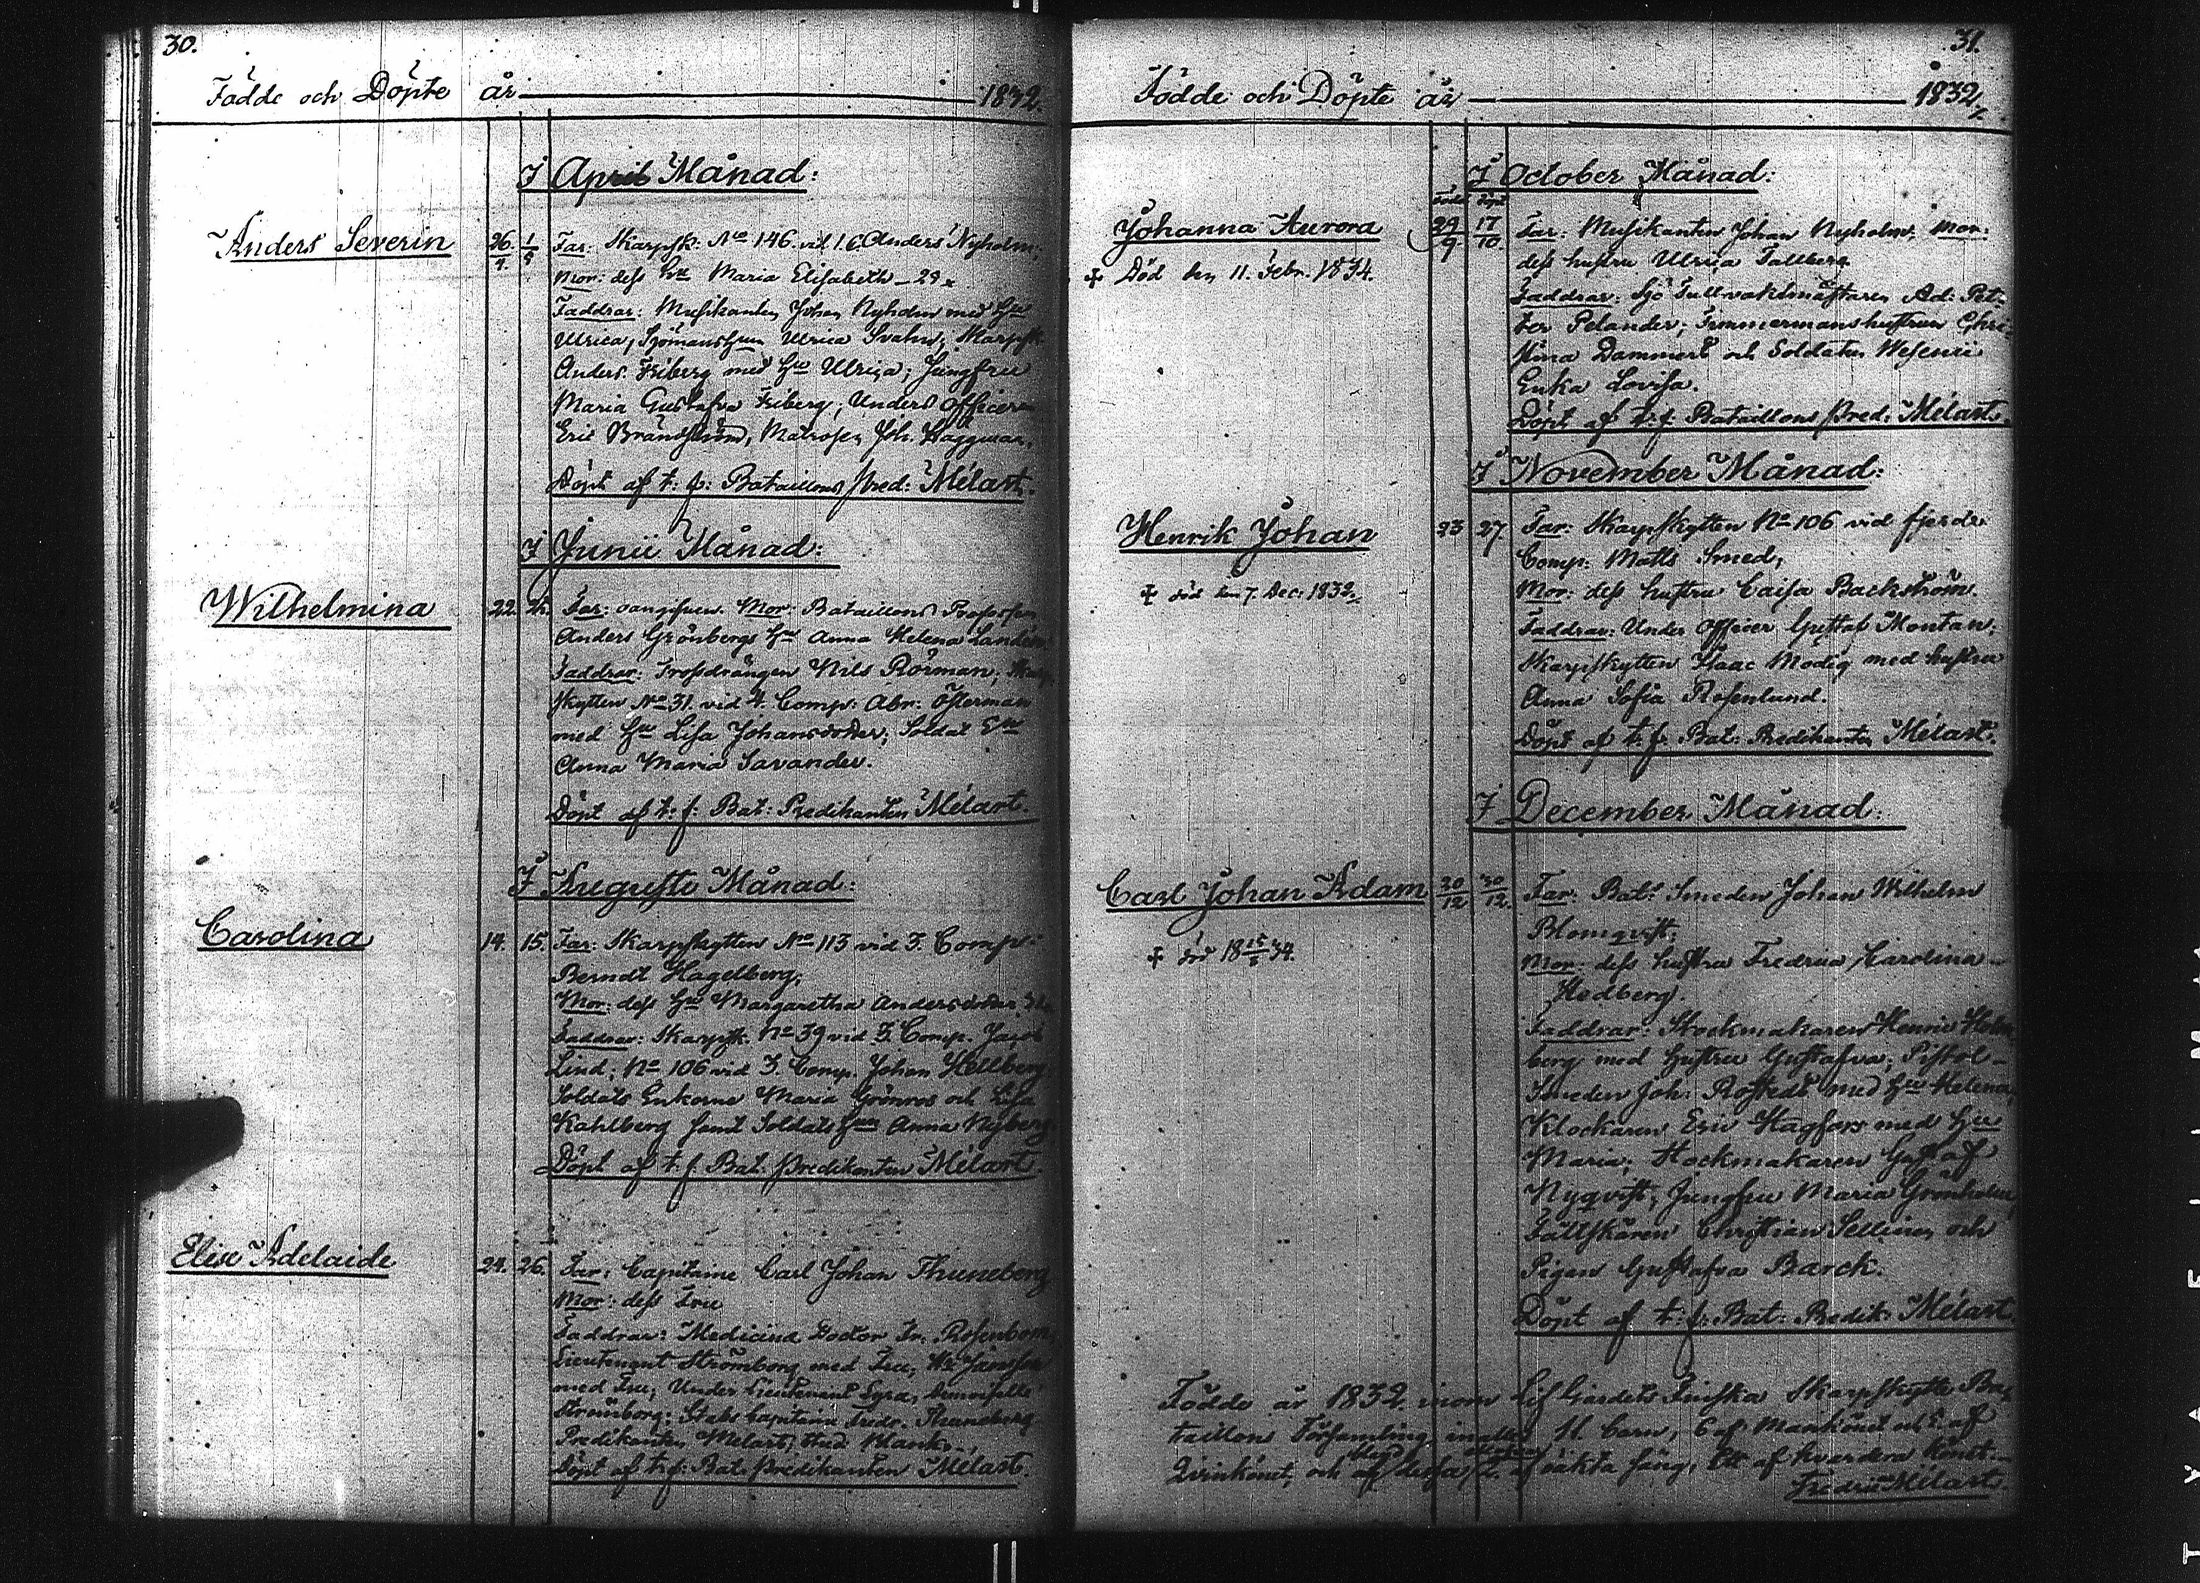 30.
Födde och Döpte år 1832.
I April Månad:
Anders Severin 26/4. 1/5 Far: Skarpsk. No 146 vid 1 C. Anders Nyholm;
Mor: dess Hu Maria Elisabeth - 29.
Faddrar: Musikanten Johan Nyholm med Hu
Ulrica, Sjömans Hun Ulrica Svahn; Skarpsk.
Anders Friberg med Hu Ulrica; Jungfru
Maria Gustafva Friberg, Under Officern
Eric Brandström, Matrosen Joh. Häggman.
Döpt af t. f. Bataillons Pred: Mélart.
I Junii Månad:
Wilhelmina 22. Far: oangifven. Mor: Bataillons Professen
Anders Grönbergs Hu Anna Helena
Faddrar: Trossdrängen Nils Rörman,
skytten No 31. vid 4. Comp: Abr: Österman
med Hu Lisa Johansdotter, Soldat
Anna Maria Savander.
Döpt af t. f. Bat: Predikanten Mélart.
I Augusti Månad:
Carolina 14. 15. Far: Skarpskytten No 113 vid 3. Comp:
Berndt Hagelberg;
Mor: dess Hu Margaretha Andersdotter
Faddrar: Skarpsk. No 39 vid 3. Comp. Jacob
Lind; No 106 vid 3. Comp. Johan Hellberg
Soldats Enkorna Maria Grönroos och Lisa
Kahlberg samt Soldats Hun Anna Nyberg
Döpt af t. f. Bat. Predikanten Mélart.
Elise Adelaide 24. 26. Far: Capitaine Carl Johan Thuneberg
Mor: dess Fru
Faddrar: Medicine Doctor Fr. Rosenbom,
Lieutenant Strömborg med Fru,
med Fru, Under Lieutenant
Strömborg; Stabs Capitaine Fredr. Thuneberg
Predikanten Mélart; Stud
Döpt af t. f. Bat. Predikanten Mélart.
31.
Födde och Döpte år 1832.
I October Månad:
Född Döpt
Johanna Aurora 29/9 17/10 Far: Musikanten Johan Nyholm; Mor:
+ Död den 11. Febr. 1834. dess hustru Ulrica Tallberg
Faddrar: Sjö Tullvaktmästaren Ad: Pet-
ter Pelander; Timmermanshustrun Chri-
stina Dammert och Soldats
Enka Lovisa.
Döpt af t. f. Bataillons Pred: Mélart.
I November Månad:
Henrik Johan 23 27. Far: Skarpskytten No 106 vid fjerde
Comp: Matts Smed,
+ död den 7. Dec: 1832. Mor: dess hustru Caisa Backström.
Faddrar: Under Officer Gustaf Montan;
Skarpskytten Isaac Modig med hustru
Anna Sofia Rosenlund.
Döpt af t. f. Bat: Predikanten Mélart.
I December Månad:
Carl Johan Adam 20/12 30/12. Far: Bat: Smeden Johan Wilhelm
Blomqvist;
+ död 18 34. Mor: dess hustru Fredrica Carolina
Hedberg.
Faddrar: Stockmakaren Henric Holm-
berg med hustru Gustafva; Pistol-
Smeden Joh: Rostedt med Hu Helena;
Klockaren Eric Hagfors med Hu
Maria; Stockmakaren Gustaf
Nyqvist; Jungfru Maria Grönholm
Fältskären Christian Sellin och
Pigan Gustafva Barck.
Döpt af t. f. Bat: Predik: Mélart.
Födde år 1832 inom Lif Gardets Finska Skarpskytte Ba-
taillons Församling inalles 7 Barn, 3 af Mankönet och 4 af
Qvinkönet, och af dessa af oäkta säng, Ett af hvardera könet.
Fredric Mélart.